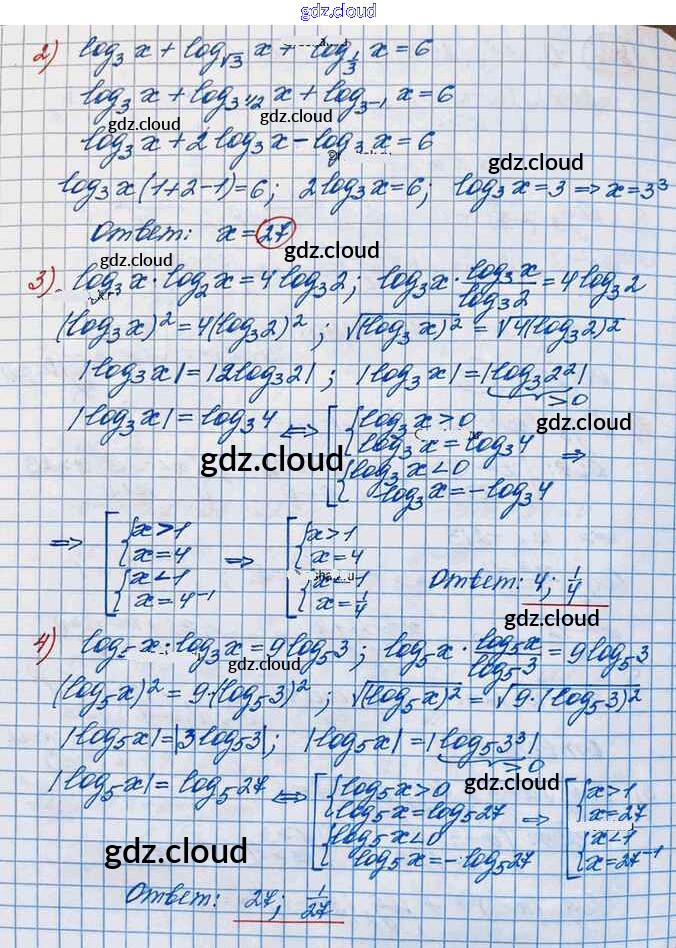 gdz.cloud
2) log₃ x + log_√3 x + log_1/3 x = 6
log₃ x + log_3^1/2 x + log_3^-1 x = 6
gdz.cloud gdz.cloud
log₃ x + 2 log₃ x - log₃ x = 6
gdz.cloud
log₃ x (1+2-1) = 6; 2 log₃ x = 6; log₃ x = 3 => x = 3³
Ответ: x = 27
gdz.cloud gdz.cloud
3) log₃ x · log₂ x = 4 log₃ 2; log₃ x · log₃ x / log₃ 2 = 4 log₃ 2
(log₃ x)² = 4(log₃ 2)²; √(log₃ x)² = √4(log₃ 2)²
|log₃ x| = |2 log₃ 2|; |log₃ x| = |log₃ 2²|
>0
|log₃ x| = log₃ 4 <=> [ { log₃ x > 0
log₃ x = log₃ 4
{ log₃ x < 0
log₃ x = -log₃ 4 =>
gdz.cloud gdz.cloud
=> [ { x > 1 => [ { x > 1
x = 4 x = 4
{ x < 1 { x < 1
x = 4⁻¹ x = 1/4
Ответ: 4; 1/4
gdz.cloud
4) log₅ x · log₃ x = 9 log₅ 3; log₅ x · log₅ x / log₅ 3 = 9 log₅ 3
gdz.cloud
(log₅ x)² = 9·(log₅ 3)²; √(log₅ x)² = √9·(log₅ 3)²
|log₅ x| = |3 log₅ 3|; |log₅ x| = |log₅ 3³|
>0
|log₅ x| = log₅ 27 <=> [ { log₅ x > 0 => [ { x > 1
log₅ x = log₅ 27 x = 27
{ log₅ x < 0 { x < 1
log₅ x = -log₅ 27 x = 27⁻¹
gdz.cloud gdz.cloud
Ответ: 27; 1/27